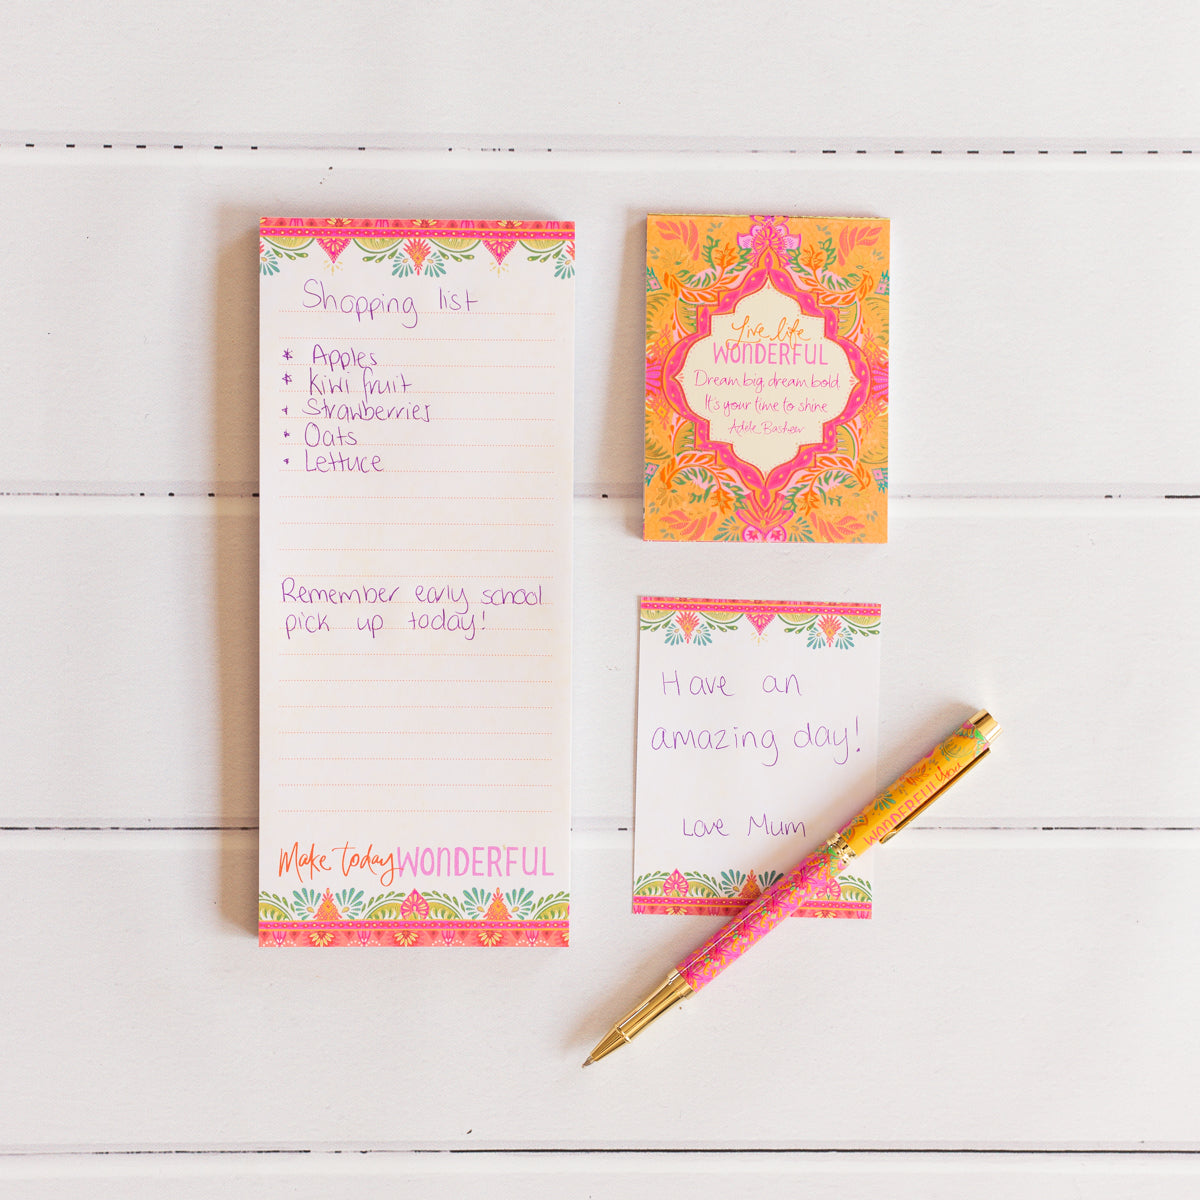 Shopping list
* Apples
* Kiwi fruit
* Strawberries
* Oats
* Lettuce
Remember early school
pick up today!
Make today WONDERFUL
Live life
WONDERFUL
Dream big, dream bold.
It's your time to shine
Adèle Basheer
Have an
amazing day!
Love Mum
WONDERFUL You